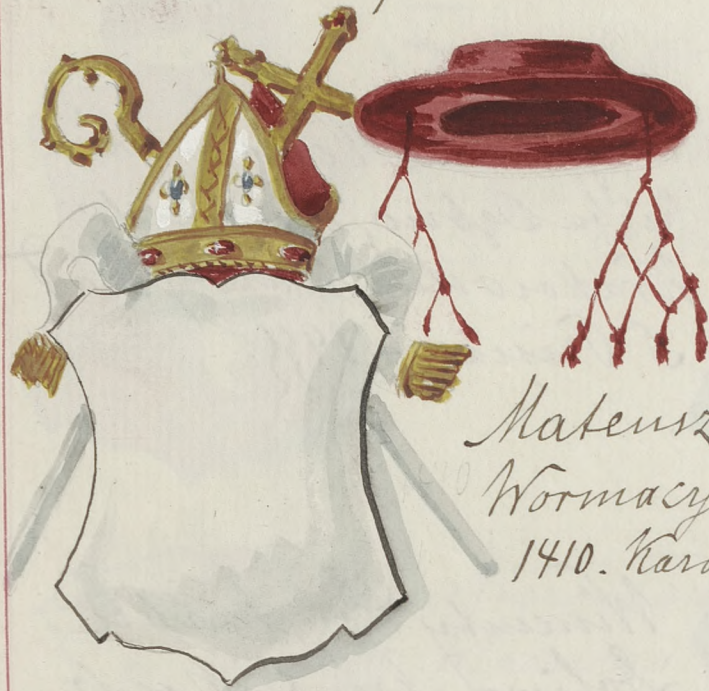 Mateusz
Wormacy
1410. Kar